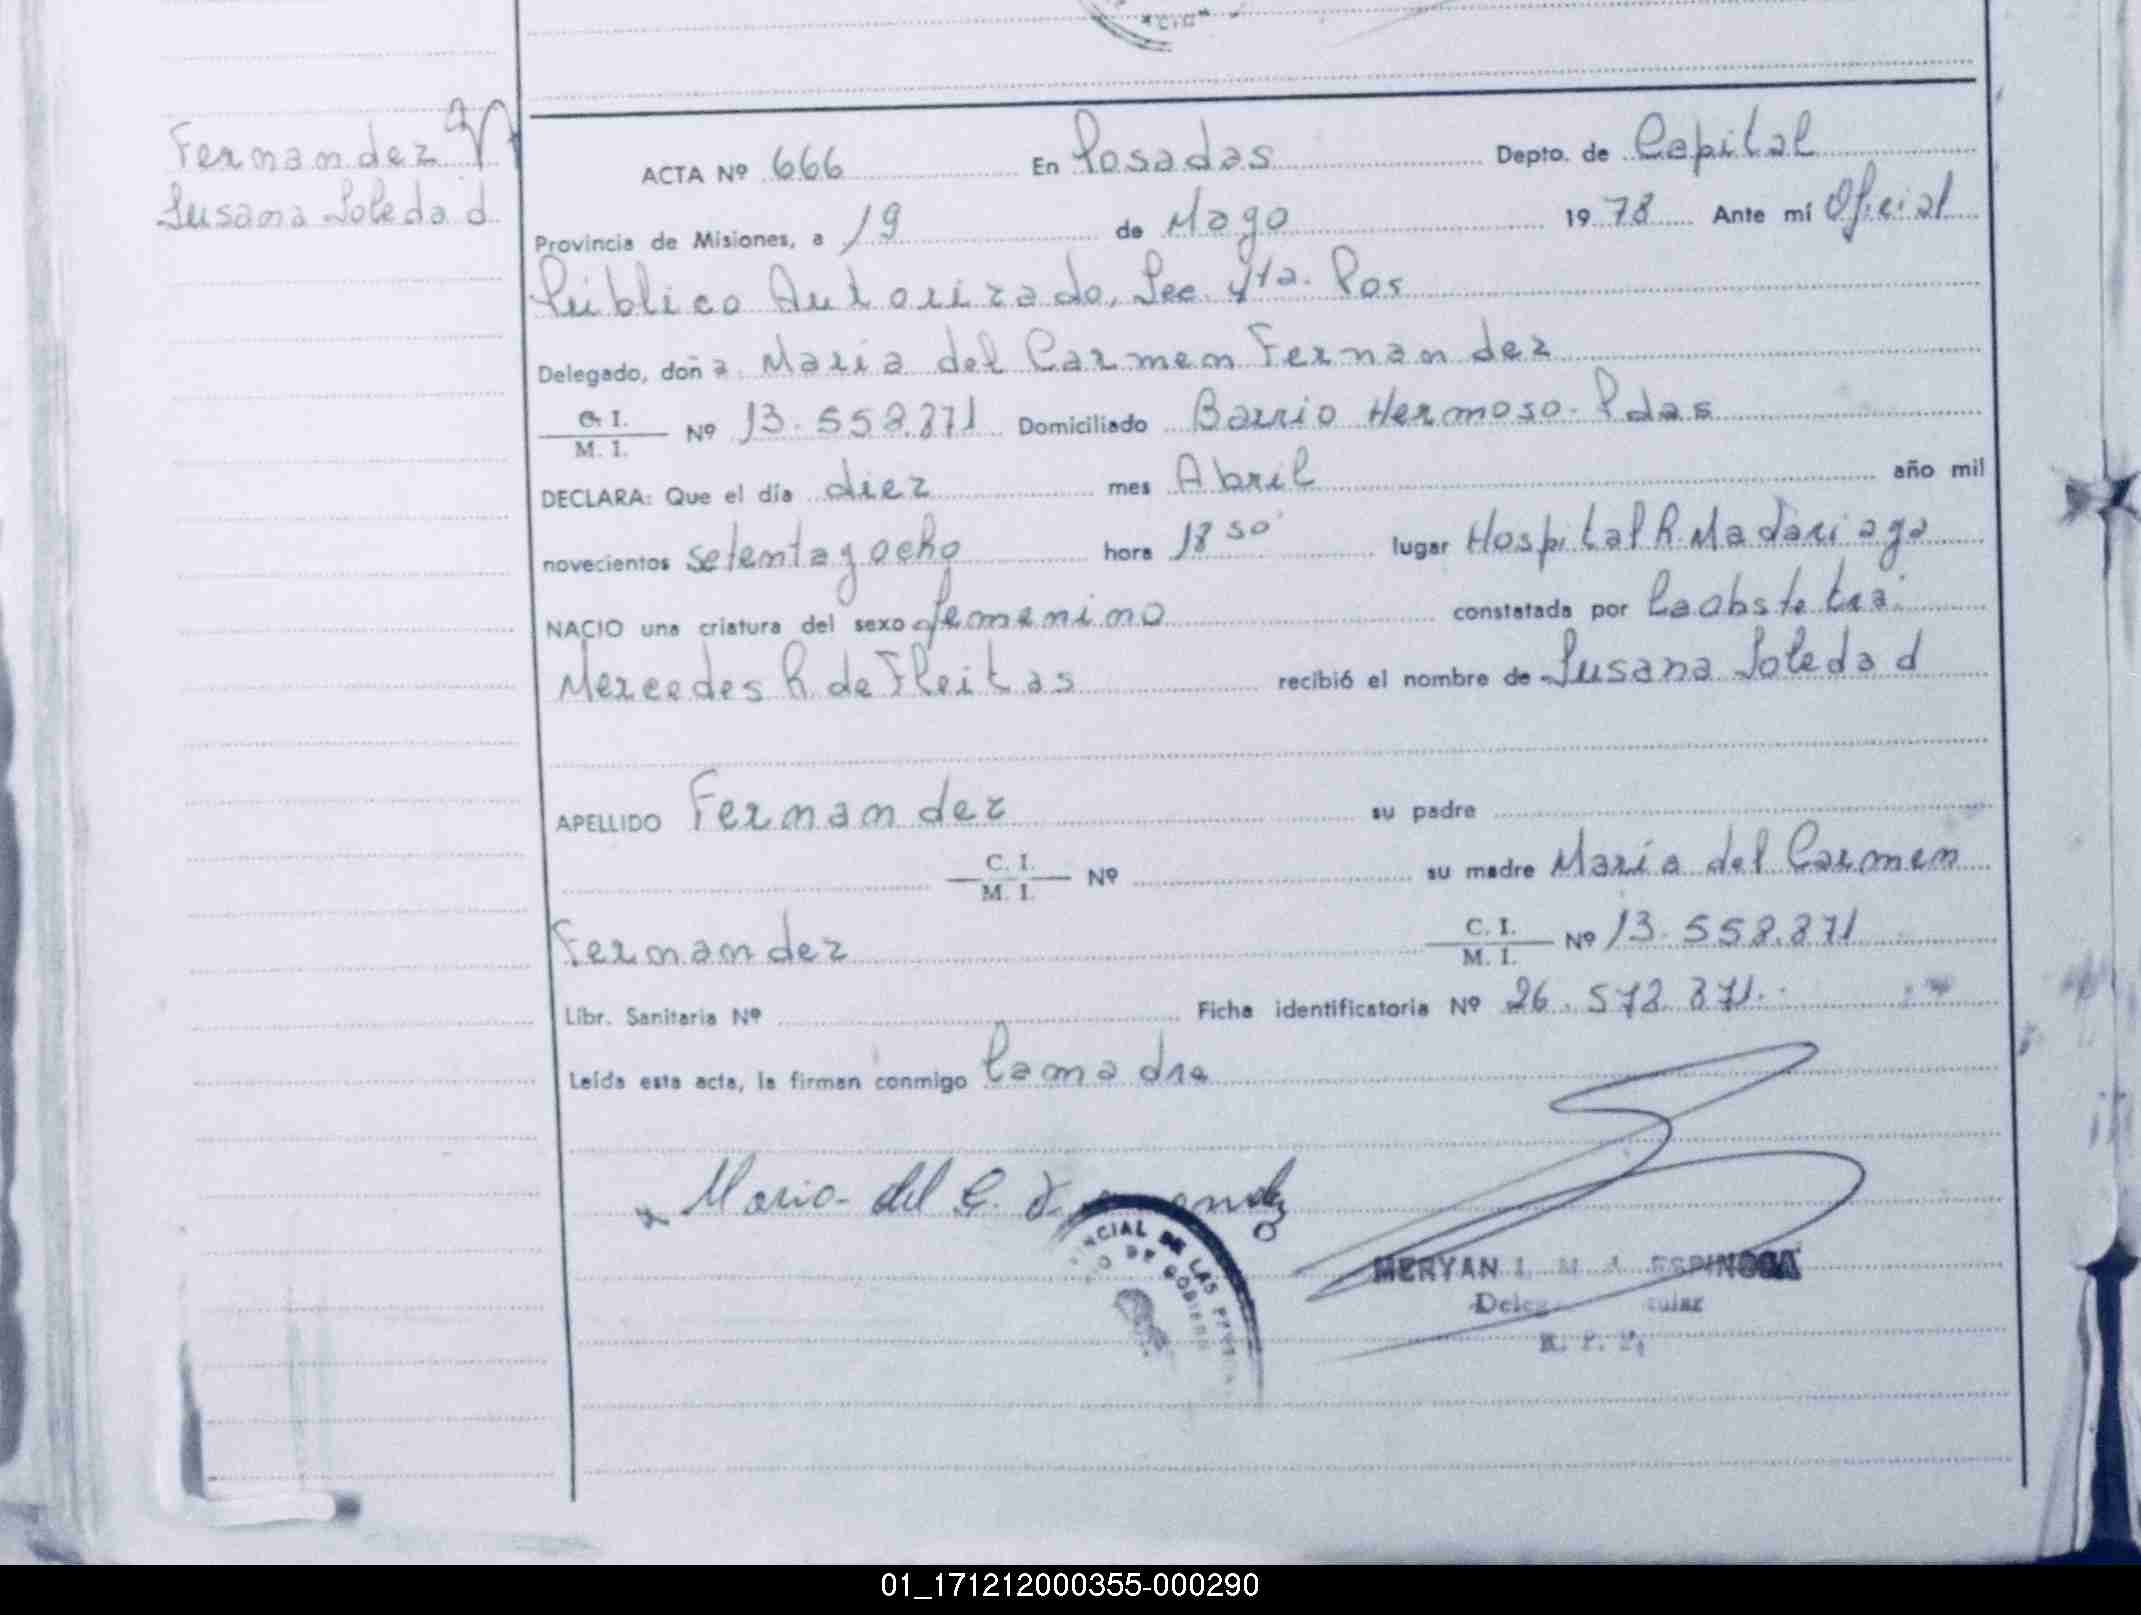 Fernandez
Susana Soledad
ACTA Nº 666 En Posadas Depto. de Capital
Provincia de Misiones, a 19 de Mayo 1978 Ante mí Oficial
Público Autorizado, Sec. 4ta. Pos
Delegado, doña Maria del Carmen Fernandez
C. I.
M. I. Nº 13.558.871 Domiciliado Barrio Hermoso - Pdas
DECLARA: Que el día diez mes Abril año mil
novecientos setenta y ocho hora 18 50' lugar Hospital R Madariaga
NACIO una criatura del sexo femenino constatada por La obstetra:
Mercedes R. de Fleitas recibió el nombre de Susana Soledad
APELLIDO Fernandez su padre
C. I.
M. I. Nº su madre María del Carmen
Fernandez C. I.
M. I. Nº 13.558.871
Libr. Sanitaria Nº Ficha identificatoria Nº 26.572.871.
Leída esta acta, la firman conmigo La madre
Maria del C. Fernandez
NCIAL DE LAS
DE GOBIER
MERYAN ESPINOSA
01_171212000355-000290